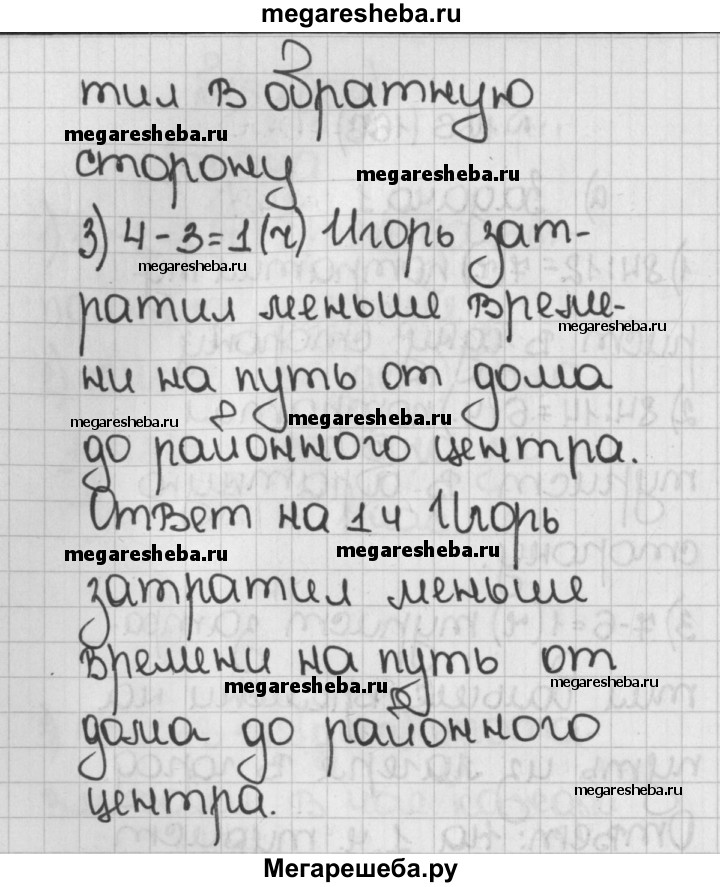 megaresheba.ru
тил в обратную
megaresheba.ru
сторону
megaresheba.ru
3) 4-3=1(ч) Игорь зат-
megaresheba.ru
ратил меньше време-
megaresheba.ru
ни на путь от дома
megaresheba.ru
megaresheba.ru
до районного центра.
Ответ на 1ч Игорь
megaresheba.ru
megaresheba.ru
затратил меньше
времени на путь от
megaresheba.ru
megaresheba.ru
дома до районного
центра.
megaresheba.ru
Мегарешеба.ру